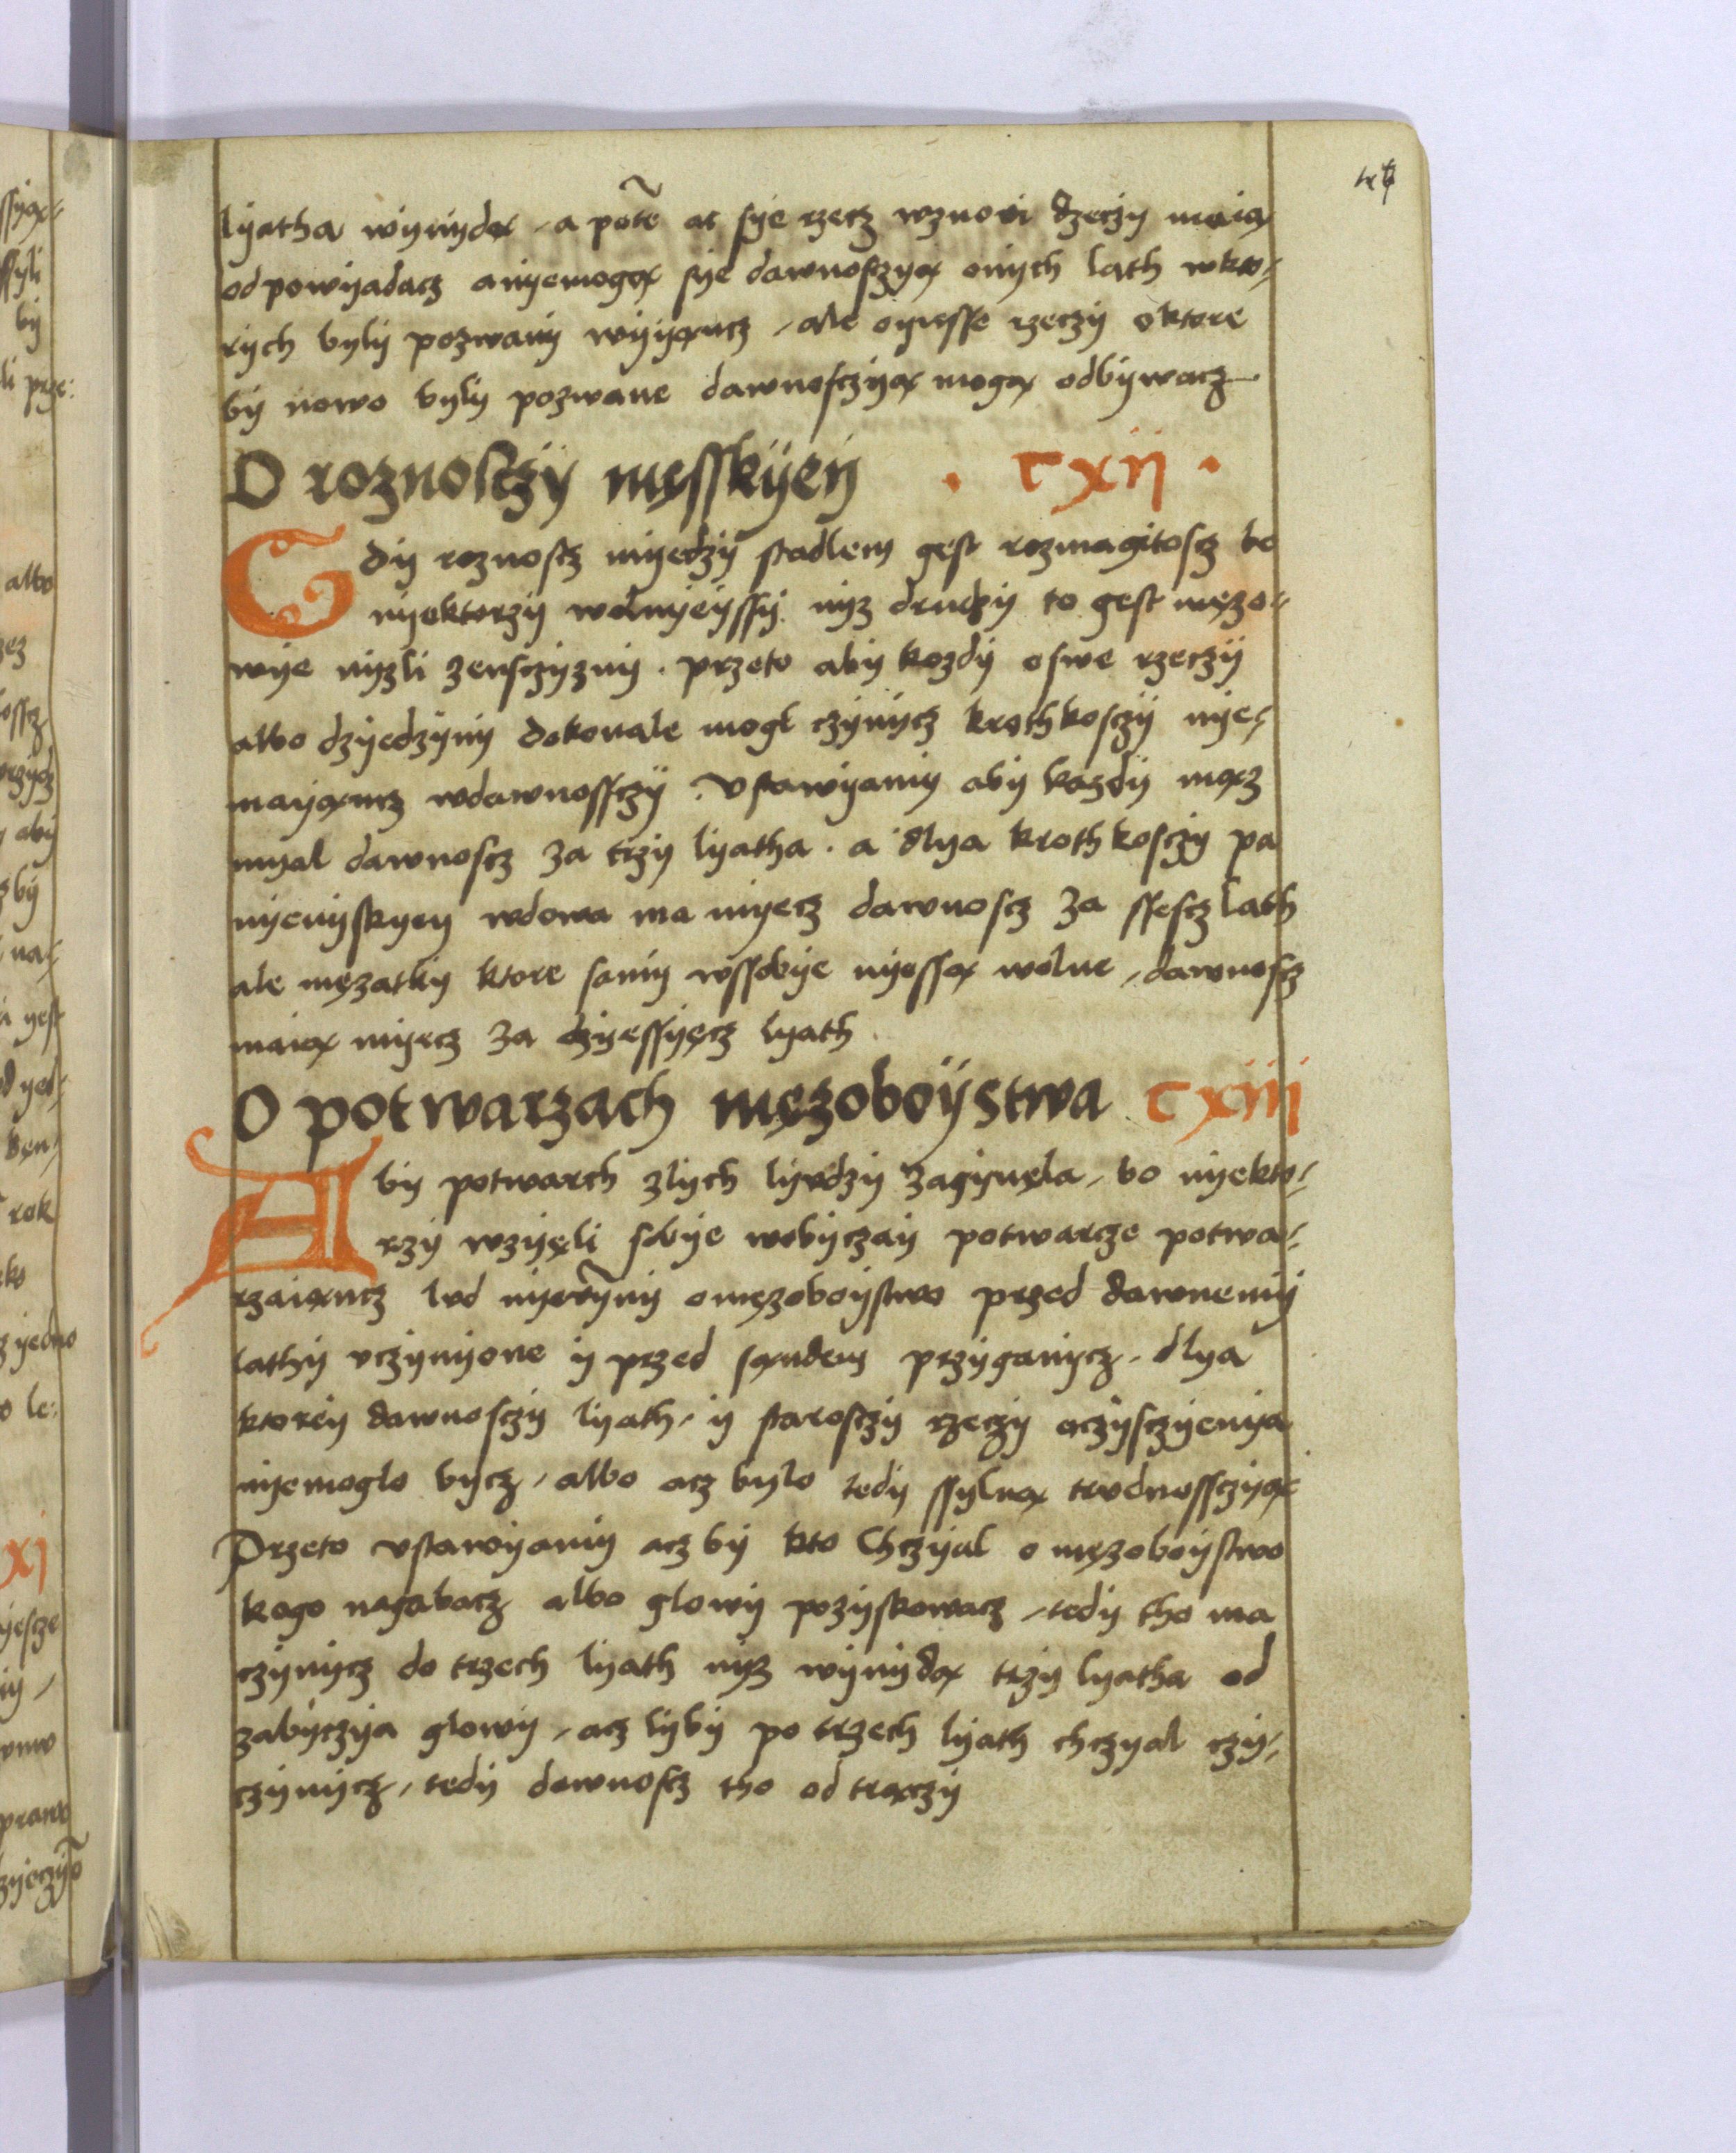 lyatha wynydą, a potẽ ac sye rzecz wznowi dzeczy maią
odpowyadacz anyemogą sye dawnosczyą onych lath wkto-
rych byly pozwany wyyąncz, ale oynsse rzeczy oktore
by nowo byly pozwane dawnosczyą mogą odbywacz
O roznosczy męsskyey . cxii .
Gdy roznoscz myedzy stadlem gest rozmagitoscz bo
nyektorzy wolnyeyssy nyz drudzy to gest męzo-
wye nyzli zensczyzny. przeto aby kozdy oswe rzeczy
albo dzyedzyny dokonale mogl czynycz krothkosczy nye-
mayąncz wdawnossczy. Vstawyamy aby kazdy mącz
myal dawnoscz za trzy lyatha. a dlya krothkosczy pa
nyenyskyey wdowa ma myecz dawnoscz za ssescz lath
ale męzatky ktore samy wssobye nyessą wolne, dawnoscz
maią myecz za dzyessyęcz lyath.
O potwarzach męzoboystwa cxiii
Aby potwarch zlych lyvdzy zagynęla, bo nyekto-
rzy wzyęli sobye wobyczay potwarcze potwa-
rzaiąncz lvd nyevỹny omęzoboystwo przed dawnemy
lathy vczynyone y przed sąndem przyganycz. dlya
ktorey dawnosczy lyath, y starosczy rzeczy oczysczyenya
nyemoglo bycz, albo acz bylo tedy ssylną trvdnossczyą
Przeto vstawyamy acz by kto Chczyal o męzoboystwo
kogo nagabacz albo glowy pozyskowacz, tedy tho ma
czynycz do trzech lyath nyz wynydą trzy lyatha od
zabyczya glowy, acz lyby po trzech lyath chczyal czy-
czynycz, tedy dawnoscz tho od trączy